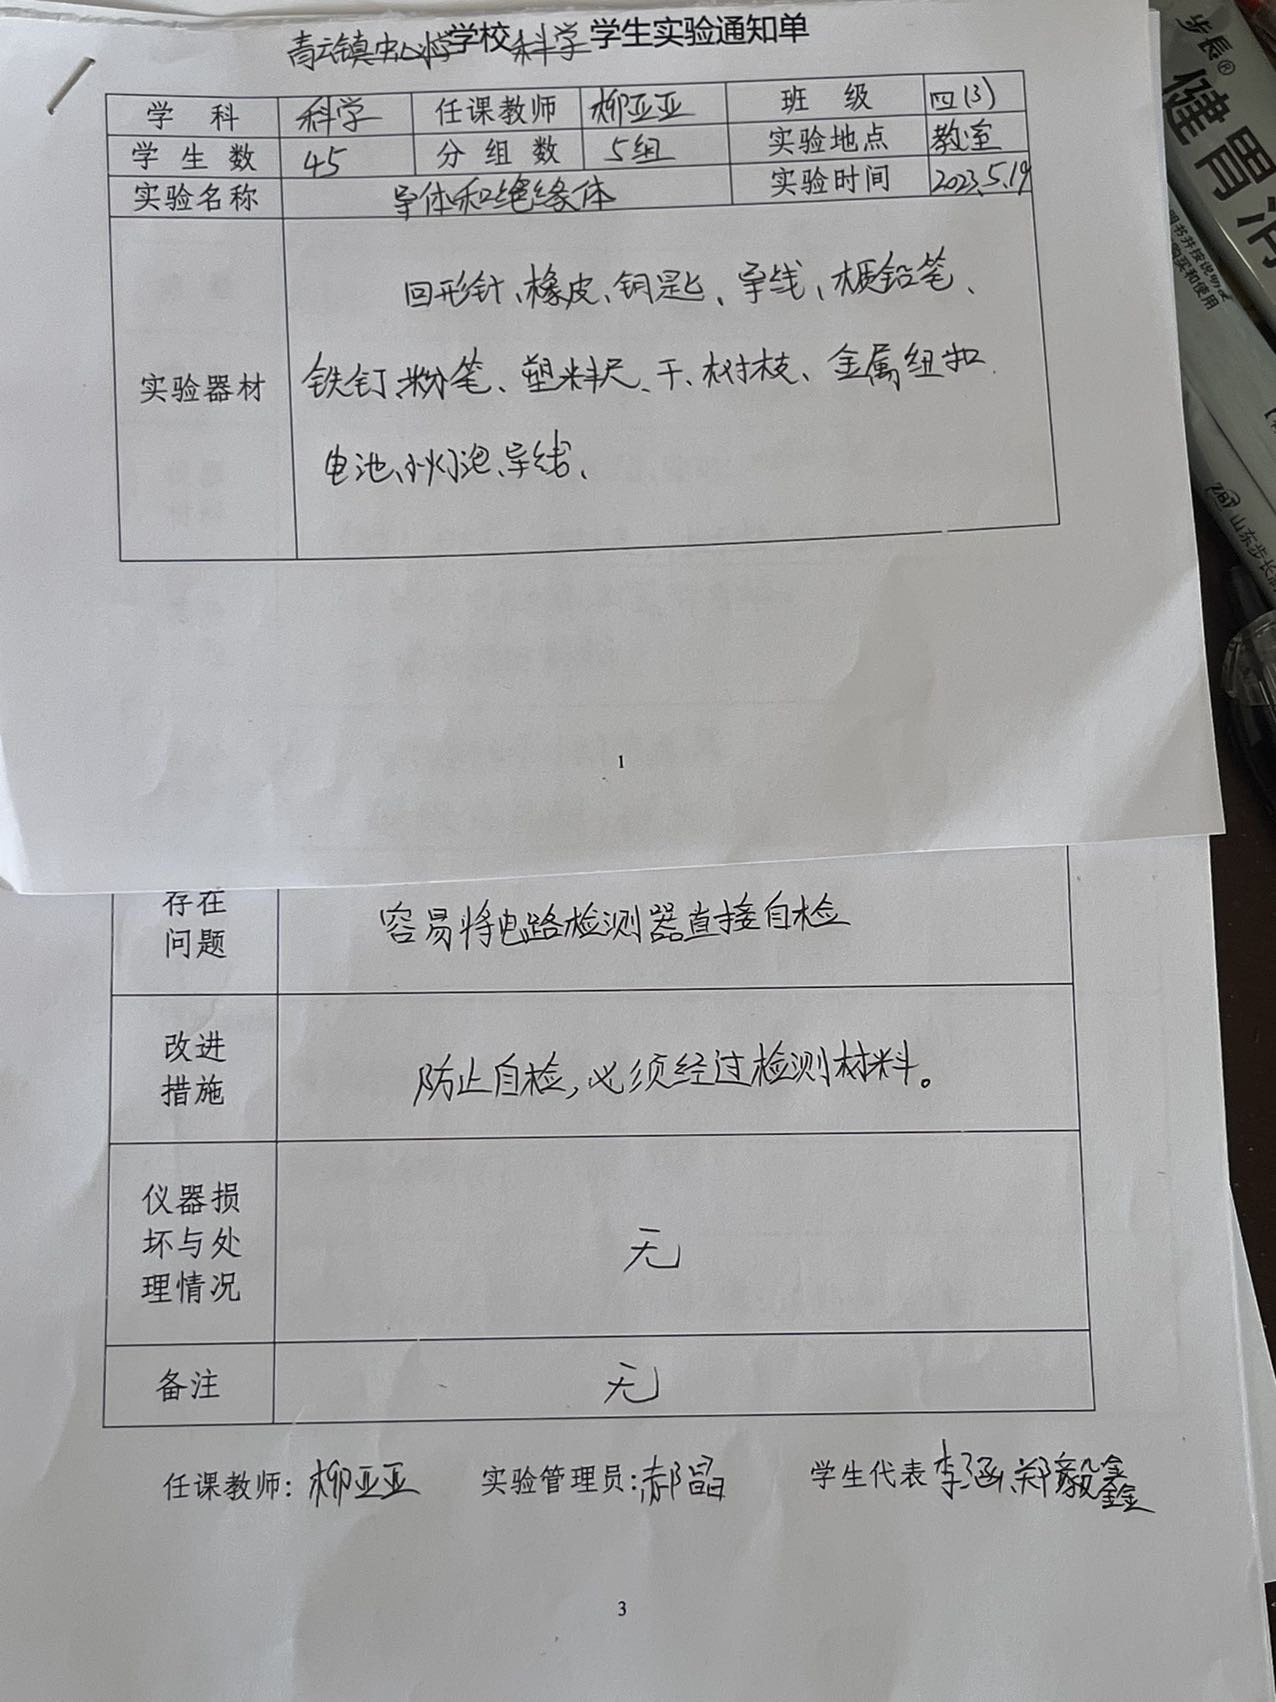 青云镇中心小学学校科学学生实验通知单
学 科 科学 任课教师 柳亚亚 班 级 四(3)
学 生 数 45 分 组 数 5组 实验地点 教室
实验名称 导体和绝缘体 实验时间 2023.5.19
实验器材
回形针、橡皮、钥匙、导线、木质铅笔、
铁钉、粉笔、塑料尺、干树枝、金属纽扣
电池、小灯泡、导线、
1
存在
问题
容易将电路检测器直接自检
改进
措施
防止自检,必须经过检测材料。
仪器损
坏与处
理情况
无
备注
无
任课教师: 柳亚亚 实验管理员: 郝晶 学生代表 李涵、郑毅鑫
3
步長®
健胃消
明书并按说明
购买和使用
山东步长